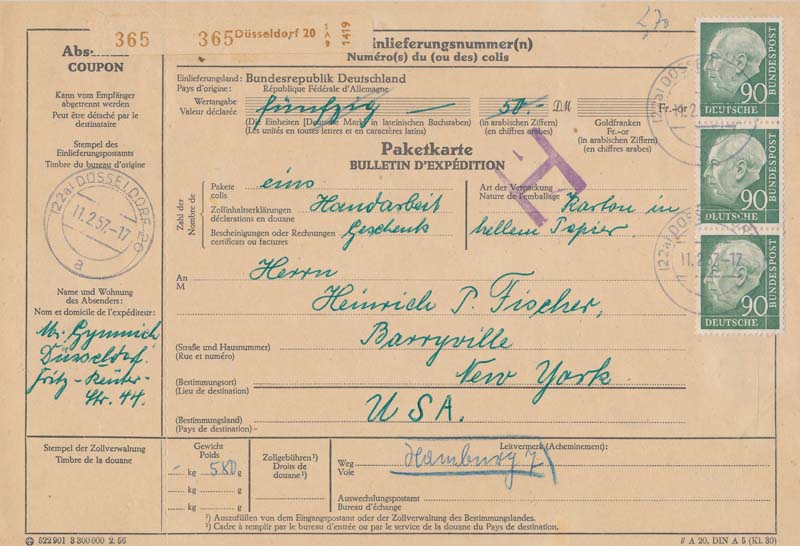 2,70
365
365 Düsseldorf 20 1A9 1419
Abs
COUPON
Kann vom Empfänger
abgetrennt werden
Peut être détaché par le
destinataire
Stempel des
Einlieferungspostamts
Timbre du bureau d'origine
(22a) DÜSSELDORF 20
11.2.57.-17
a
Name und Wohnung
des Absenders:
Nom et domicile de l'expéditeur:
Gymnich
Düsseldorf
Fritz-Reuter-
Str. 44.
Einlieferungsnummer(n)
Numéro(s) du (ou des) colis
Einlieferungsland: Bundesrepublik Deutschland
Pays d'origine: République Fédérale d'Allemagne
Wertangabe
Valeur déclarée
fünfzig — 50.- DM Fr.-or
(Die Einheiten [Deutsche Mark] in lateinischen Buchstaben)
(Les unités en toutes lettres et en caractères latins)
(in arabischen Ziffern)
(en chiffres arabes)
Goldfranken
Fr.-or
(in arabischen Ziffern)
(en chiffres arabes)
Paketkarte
BULLETIN D'EXPÉDITION
H
Zahl der
Nombre de
Pakete
colis
eins
Zollinhaltserklärungen
déclarations en douane
Handarbeit
Bescheinigungen oder Rechnungen
certificats ou factures
Geschenk
Art der Verpackung
Nature de l'emballage
Karton in
hellem Papier.
An
M
Herrn
Heinrich P. Fischer,
Barryville
(Straße und Hausnummer)
(Rue et numéro)
New York
(Bestimmungsort)
(Lieu de destination)
USA.
(Bestimmungsland)
(Pays de destination)
Stempel der Zollverwaltung
Timbre de la douane
Gewicht
Poids
- kg 580 g
kg g
kg g
Zollgebühren ¹)
Droits de
douane ¹)
Leitvermerk (Acheminement):
Weg
Voie
Hamburg 7
Auswechslungspostamt
Bureau d'échange
¹) Auszufüllen von dem Eingangspostamt oder der Zollverwaltung des Bestimmungslandes.
¹) Cadre à remplir par le bureau d'entrée ou par le service de la douane du Pays de destination.
522 901 3 300 000 2. 56
// A 20, DIN A 5 (Kl. 30)
90
DEUTSCHE
BUNDESPOST
90
DEUTSCHE
BUNDESPOST
90
DEUTSCHE
BUNDESPOST
(22a) DÜSSELDORF
11.2.57.-17